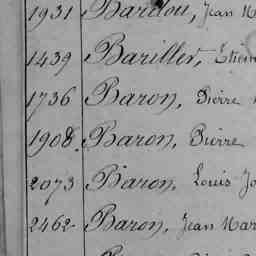 1931 Bardou, Jean
1439 Bariller, Etien
1736 Baron, Pierre
1908. Baron, Pierre
2073 Baron, Louis Jo
2462 Baron, Jean Mar